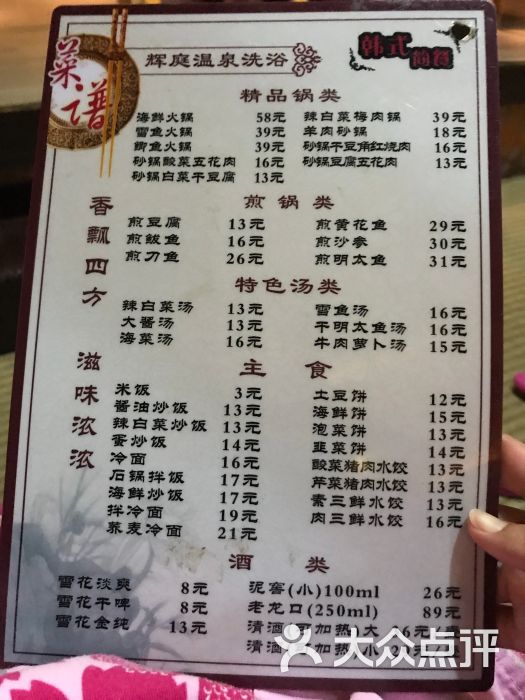 菜谱
辉庭温泉洗浴
韩式
简餐
精品锅类
海鲜火锅 58元 辣白菜梅肉锅 39元
雪鱼火锅 39元 羊肉砂锅 18元
鲫鱼火锅 39元 砂锅干豆角红烧肉 16元
砂锅酸菜五花肉 16元 砂锅豆腐五花肉 13元
砂锅白菜干豆腐 13元
香飘四方
煎锅类
煎豆腐 13元 煎黄花鱼 29元
煎鲅鱼 16元 煎沙参 30元
煎刀鱼 26元 煎明太鱼 31元
特色汤类
辣白菜汤 13元 雪鱼汤 16元
大酱汤 13元 干明太鱼汤 16元
海菜汤 16元 牛肉萝卜汤 15元
滋味浓浓
主食
米饭 3元 土豆饼 12元
酱油炒饭 13元 海鲜饼 15元
辣白菜炒饭 13元 泡菜饼 13元
蛋炒饭 14元 韭菜饼 14元
冷面 16元 酸菜猪肉水饺 13元
石锅拌饭 17元 芹菜猪肉水饺 13元
海鲜炒饭 17元 素三鲜水饺 13元
拌冷面 19元 肉三鲜水饺 16元
荞麦冷面 21元
酒类
雪花淡爽 8元 泥窖(小)100ml 26元
雪花干啤 8元 老龙口(250ml) 89元
雪花金纯 13元 清酒(可加热)大
清酒(可加热)小
大众点评